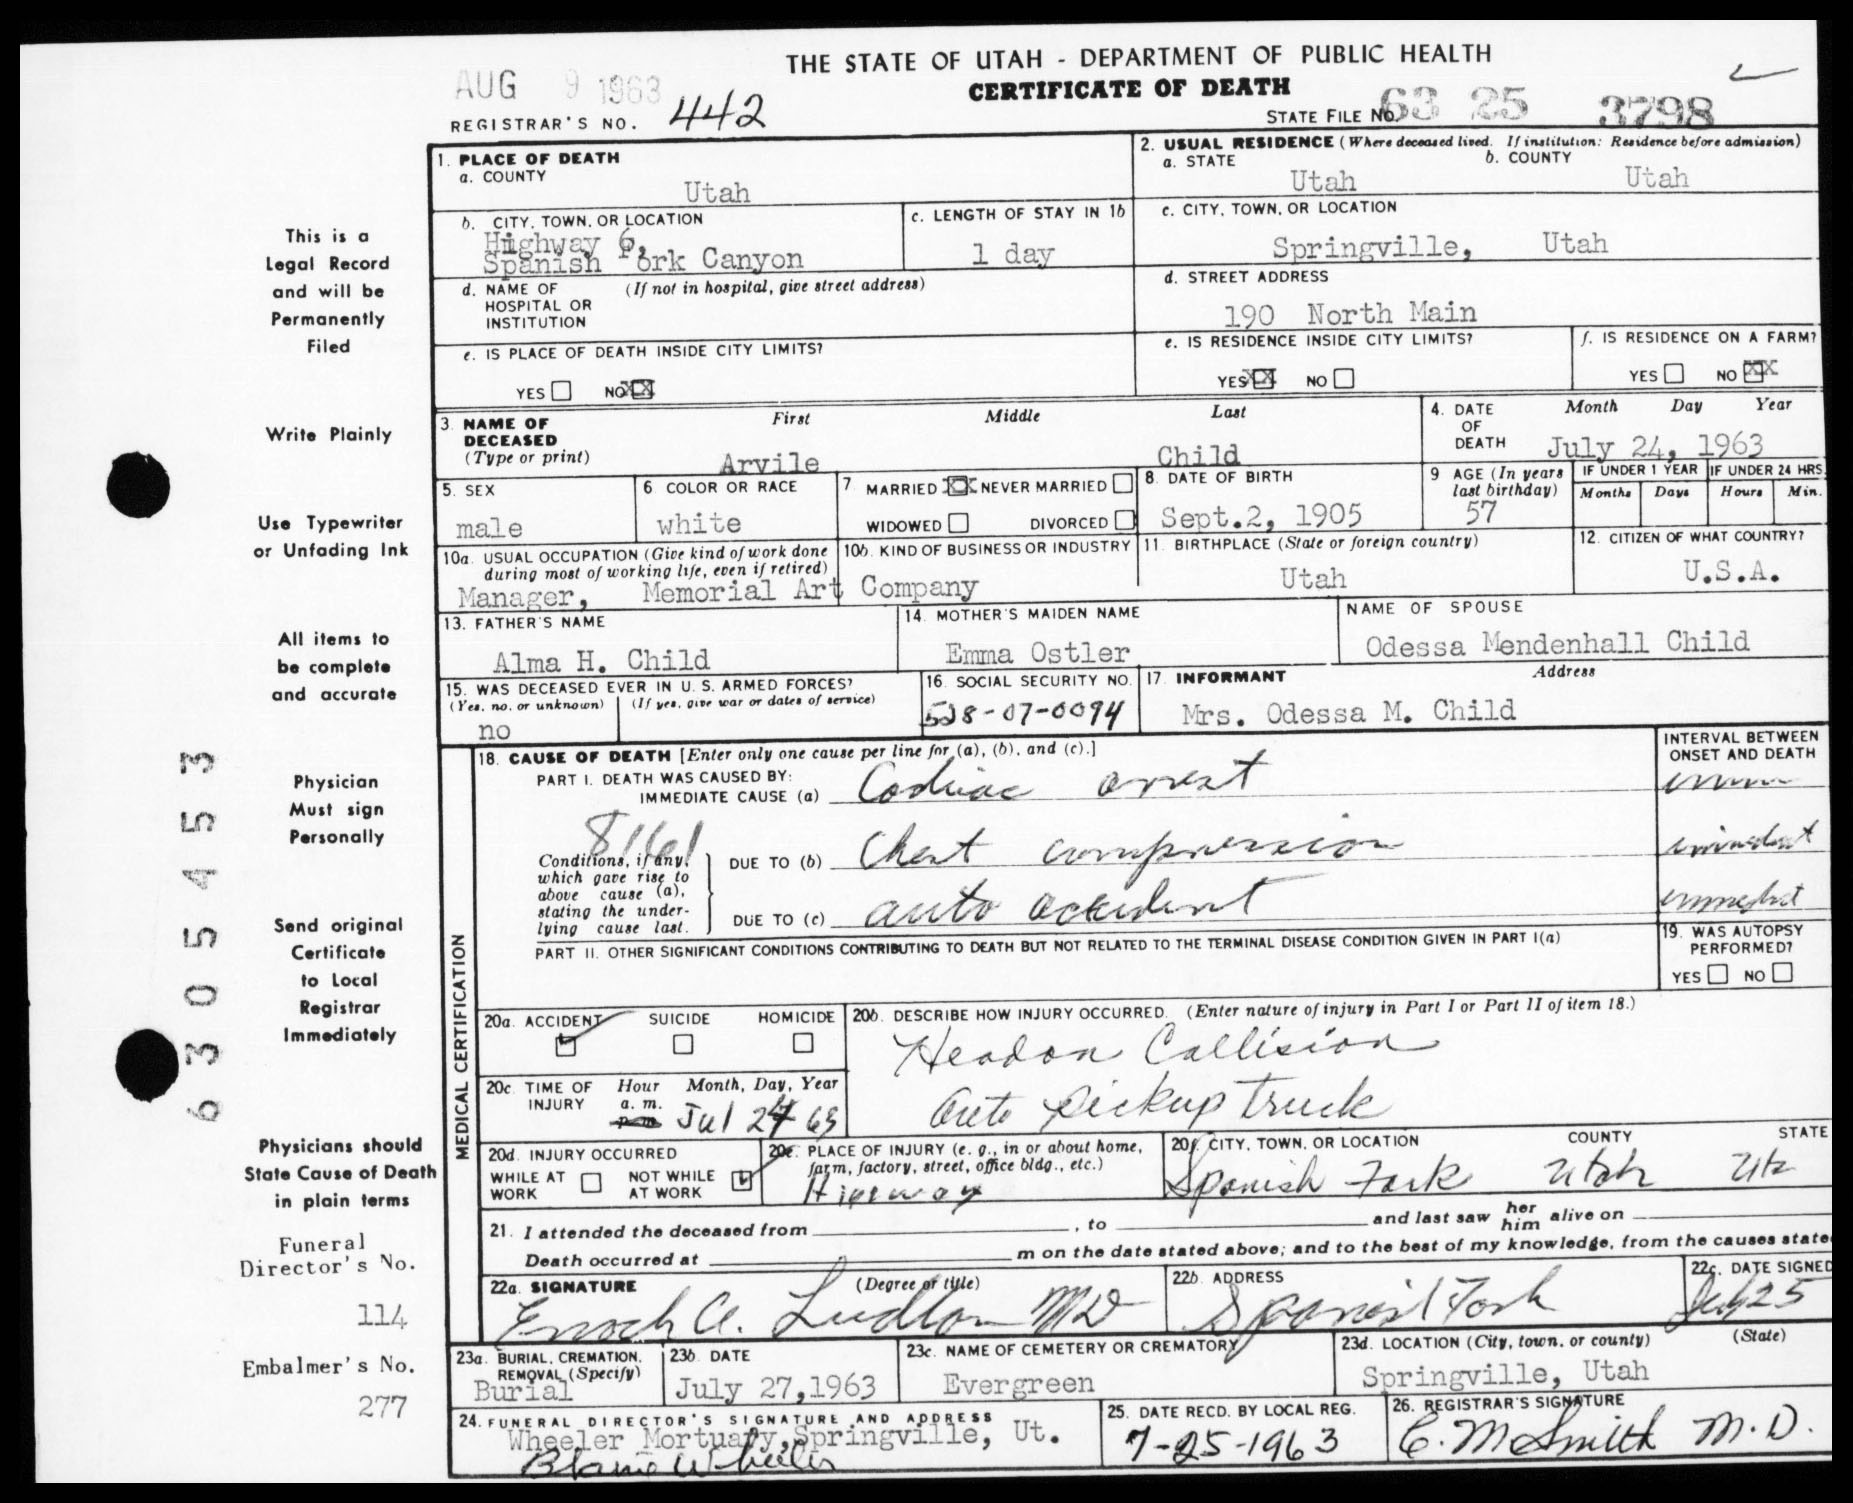 THE STATE OF UTAH - DEPARTMENT OF PUBLIC HEALTH
CERTIFICATE OF DEATH
AUG 9 1963
REGISTRAR'S NO. 442
STATE FILE NO. 63 25 3798
This is a
Legal Record
and will be
Permanently
Filed
Write Plainly
Use Typewriter
or Unfading Ink
All items to
be complete
and accurate
Physician
Must sign
Personally
Send original
Certificate
to Local
Registrar
Immediately
Physicians should
State Cause of Death
in plain terms
Funeral
Director's No.
114
Embalmer's No.
277
6305453
1. PLACE OF DEATH
a. COUNTY
Utah
b. CITY, TOWN, OR LOCATION
Highway 6,
Spanish Fork Canyon
c. LENGTH OF STAY IN 1b
1 day
d. NAME OF (If not in hospital, give street address)
HOSPITAL OR
INSTITUTION
e. IS PLACE OF DEATH INSIDE CITY LIMITS?
YES NO XX
2. USUAL RESIDENCE (Where deceased lived. If institution: Residence before admission)
a. STATE b. COUNTY
Utah Utah
c. CITY, TOWN, OR LOCATION
Springville, Utah
d. STREET ADDRESS
190 North Main
e. IS RESIDENCE INSIDE CITY LIMITS?
YES XX NO
f. IS RESIDENCE ON A FARM?
YES NO XX
3. NAME OF DECEASED
(Type or print)
First Middle Last
Arvile Child
4. DATE OF DEATH
Month Day Year
July 24, 1963
5. SEX
male
6. COLOR OR RACE
white
7. MARRIED XX NEVER MARRIED
WIDOWED DIVORCED
8. DATE OF BIRTH
Sept.2, 1905
9 AGE (In years
last birthday)
57
IF UNDER 1 YEAR IF UNDER 24 HRS.
Months Days Hours Min.
10a. USUAL OCCUPATION (Give kind of work done
during most of working life, even if retired)
10b. KIND OF BUSINESS OR INDUSTRY
Manager, Memorial Art Company
11. BIRTHPLACE (State or foreign country)
Utah
12. CITIZEN OF WHAT COUNTRY?
U.S.A.
13. FATHER'S NAME
Alma H. Child
14. MOTHER'S MAIDEN NAME
Emma Ostler
NAME OF SPOUSE
Odessa Mendenhall Child
15. WAS DECEASED EVER IN U.S. ARMED FORCES?
(Yes, no, or unknown) (If yes, give war or dates of service)
no
16. SOCIAL SECURITY NO.
528-07-0094
17. INFORMANT Address
Mrs. Odessa M. Child
MEDICAL CERTIFICATION
18. CAUSE OF DEATH [Enter only one cause per line for (a), (b), and (c).]
INTERVAL BETWEEN
ONSET AND DEATH
PART I. DEATH WAS CAUSED BY:
IMMEDIATE CAUSE (a) Codiac arrest
8161
Conditions, if any,
which gave rise to
above cause (a),
stating the under-
lying cause last.
DUE TO (b) Chest compression
DUE TO (c) auto accident
PART II. OTHER SIGNIFICANT CONDITIONS CONTRIBUTING TO DEATH BUT NOT RELATED TO THE TERMINAL DISEASE CONDITION GIVEN IN PART I(a)
19. WAS AUTOPSY
PERFORMED?
YES NO
20a. ACCIDENT SUICIDE HOMICIDE
20b. DESCRIBE HOW INJURY OCCURRED. (Enter nature of injury in Part I or Part II of item 18.)
Headon Collision
Auto Pickup Truck
20c. TIME OF INJURY
Hour Month, Day, Year
a. m.
p. m. Jul 24 63
20d. INJURY OCCURRED
WHILE AT WORK NOT WHILE AT WORK
20e. PLACE OF INJURY (e. g., in or about home,
farm, factory, street, office bldg., etc.)
Higeway
20f. CITY, TOWN, OR LOCATION COUNTY STATE
Spanish Fork Utah Ut
21. I attended the deceased from , to and last saw her him alive on
Death occurred at m on the date stated above; and to the best of my knowledge, from the causes state
22a. SIGNATURE (Degree or title)
Enoch A. Ludlow MD
22b. ADDRESS
Spanish Fork
22c. DATE SIGNED
July 25
23a. BURIAL, CREMATION,
REMOVAL (Specify)
Burial
23b. DATE
July 27,1963
23c. NAME OF CEMETERY OR CREMATORY
Evergreen
23d. LOCATION (City, town, or county) (State)
Springville, Utah
24. FUNERAL DIRECTOR'S SIGNATURE AND ADDRESS
Wheeler Mortuary, Springville, Ut.
Blaine Wheeler
25. DATE RECD. BY LOCAL REG.
7-25-1963
26. REGISTRAR'S SIGNATURE
C. M Smith M.D.